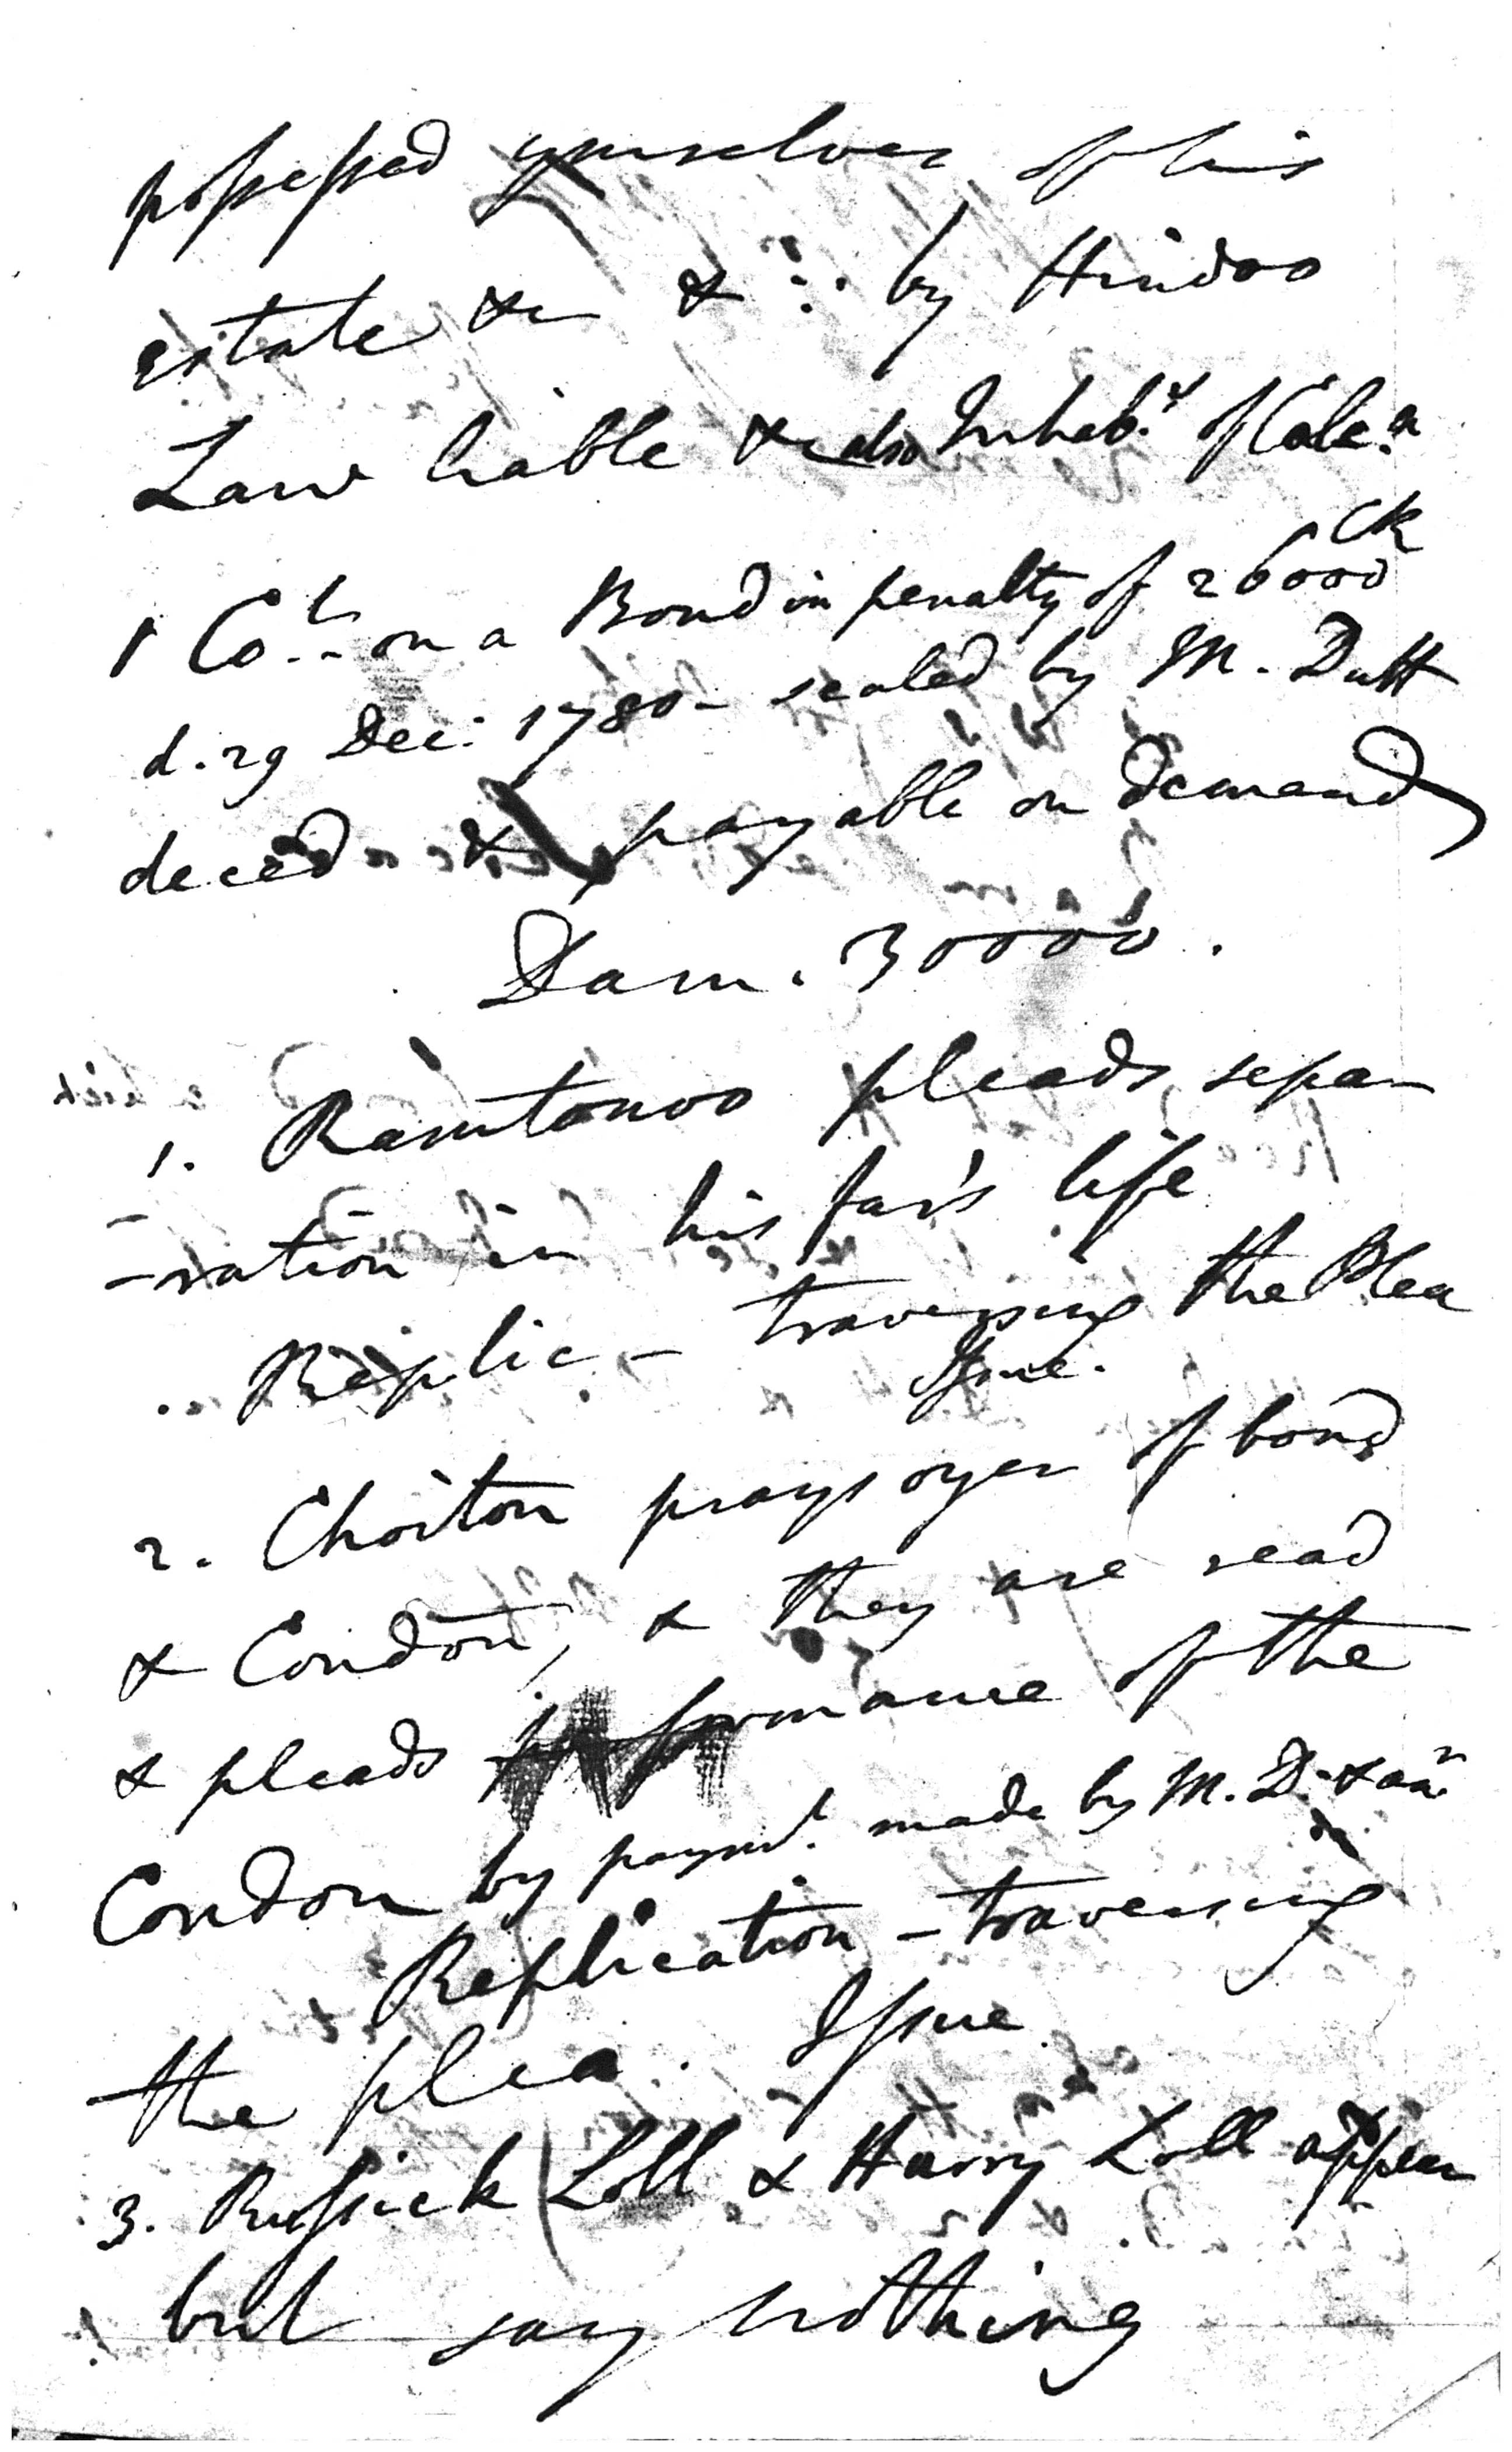 possessed yourselves of his
estate &c & ∵ by Hindoo
Law liable &c also Inhabt. of Calca.
1 Cot. on a Bond in penalty of 26000 CR
d. 29 Dec: 1780 - sealed by M. Dutt
deced & payable on demand
Dam. 30000.
1. Ramtonoo pleads sepa-
-ration in his far's life
Replic - traversing the Plea
Issue.
2. Choiton prays oyer of bond
& Condon, & they are read
& pleads performance of the
Condon by paymt. made by M. D. &
Replication - traversing
the plea. Issue
3. Russick Loll & Harry Loll appear
but say nothing